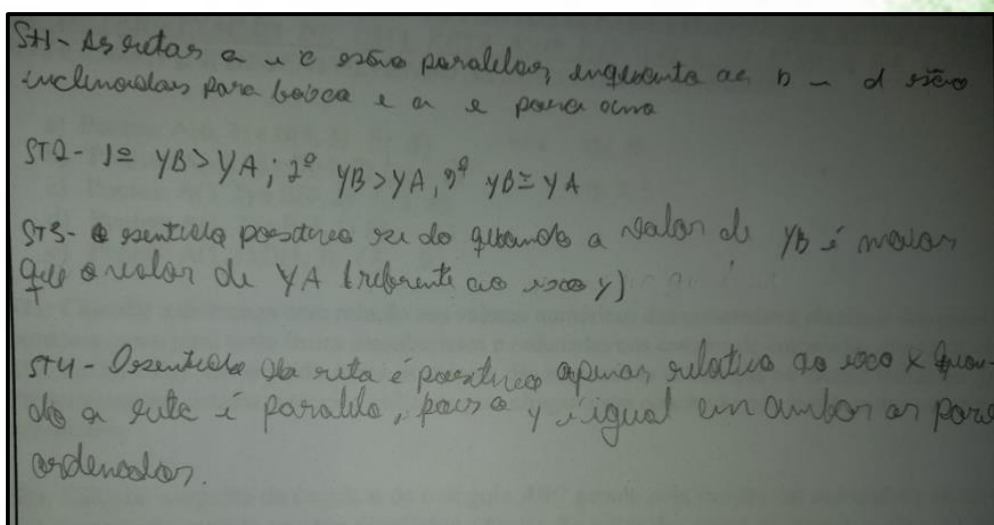 ST1- As retas a e c estão paralelas, enquanto as b - d estão
inclinadas para baixo e a e para cima
ST2- 1º YB > YA; 2º YB > YA, 3º YB = YA
ST3- O sentido positivo se dá quando o valor de YB é maior
que o valor de YA (referente ao eixo y)
ST4- O sentido da reta é positivo apenas relativo ao eixo x quan-
do a reta é paralela, pois o y é igual em ambos os pares
ordenados.